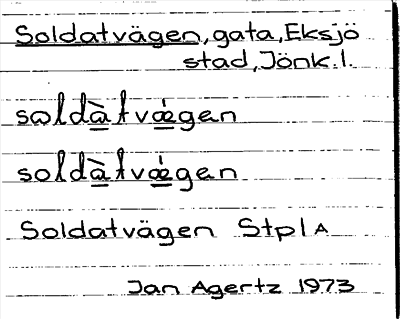 Soldatvägen, gata, Eksjö
stad, Jönk. l.
soldàtvǽgen
soldàtvǽgen
Soldatvägen Stpl A
Jan Agertz 1973